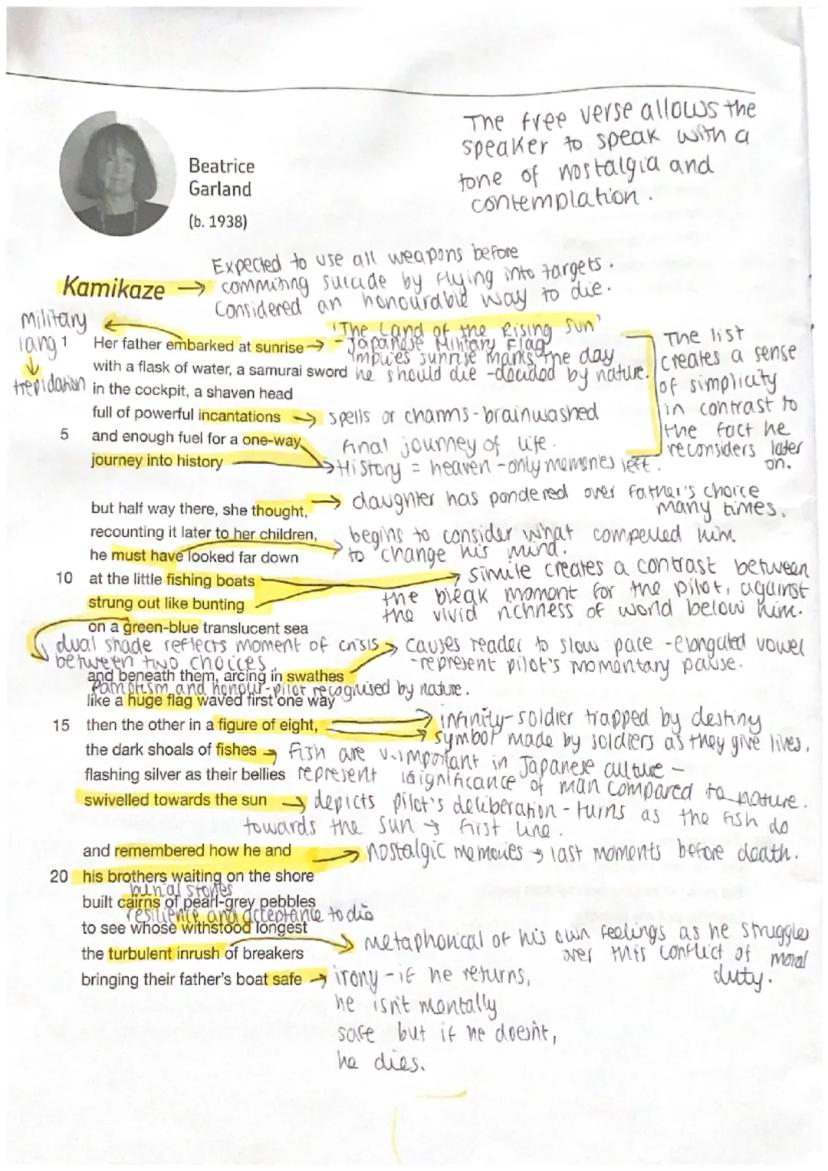 The free verse allows the
speaker to speak with a
tone of nostalgia and
contemplation.
Beatrice
Garland
(b. 1938)
Expected to use all weapons before
commiting suicide by flying into targets.
Considered an honourable way to die.
Kamikaze →
Military
lang
↓
trepidation
'The Land of the Rising Sun'
1 Her father embarked at sunrise → - Japanese Military Flag
Implies sunrise marks the day
with a flask of water, a samurai sword he should die - decided by nature.
in the cockpit, a shaven head
full of powerful incantations → spells or charms - brainwashed
The list
creates a sense
of simplicity
in contrast to
the fact he
reconsiders later
on.
5 and enough fuel for a one-way final journey of life.
journey into history → History = heaven - only memories left.
but half way there, she thought, → daughter has pondered over father's choice
many times.
recounting it later to her children, begins to consider what compelled him
he must have looked far down → to change his mind.
10 at the little fishing boats → simile creates a contrast between
strung out like bunting the bleak moment for the pilot, against
the vivid richness of world below him.
on a green-blue translucent sea
dual shade reflects moment of crisis
between two choices.
→ causes reader to slow pace - elongated vowel
- represent pilot's momentary pause.
and beneath them, arcing in swathes
Patriotism and honour - pilot recognised by nature.
like a huge flag waved first one way
15 then the other in a figure of eight, → infinity - soldier trapped by destiny
→ symbol made by soldiers as they give lives.
the dark shoals of fishes → Fish are v. important in Japanese culture -
flashing silver as their bellies represent insignificance of man compared to nature.
swivelled towards the sun → depicts pilot's deliberation - turns as the fish do
towards the sun → first line.
and remembered how he and → nostalgic memories → last moments before death.
20 his brothers waiting on the shore
burial stones
built cairns of pearl-grey pebbles
resilience and acceptance to die
to see whose withstood longest
the turbulent inrush of breakers → metaphorical of his own feelings as he struggles
over this conflict of moral
duty.
bringing their father's boat safe → irony - if he returns,
he isn't mentally
safe but if he doesn't,
he dies.